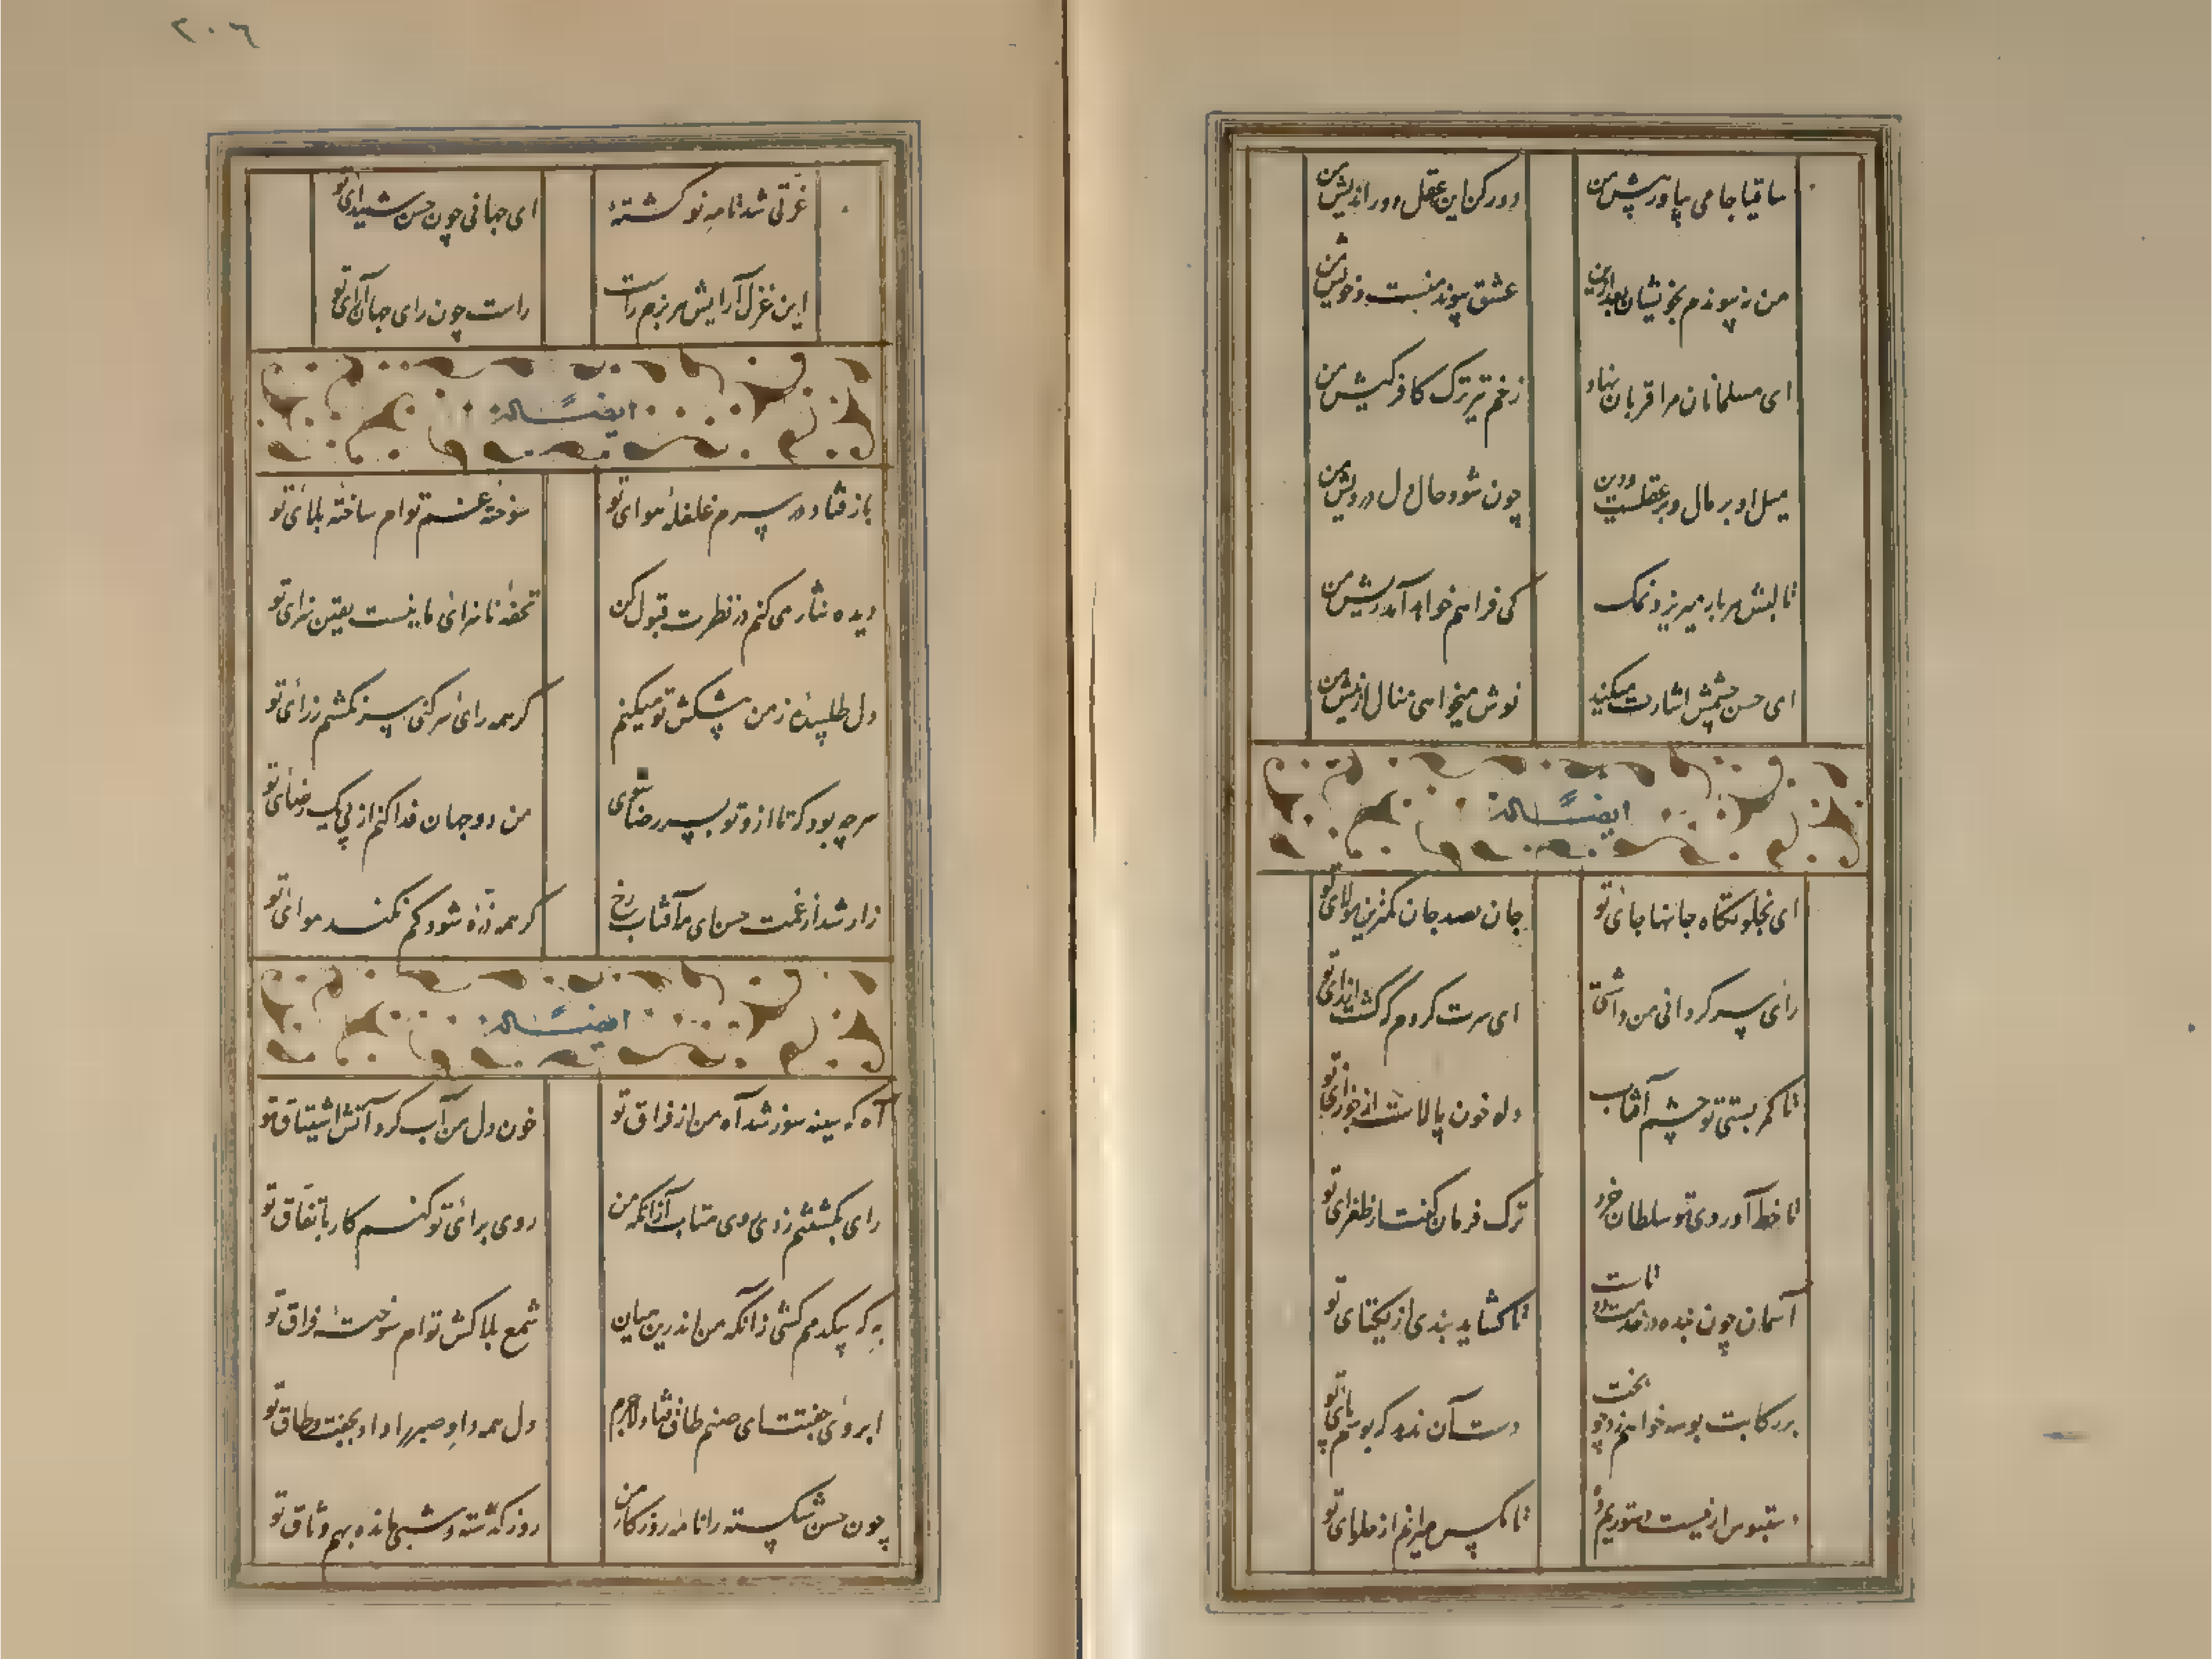 ساقیا جامی بیاور پیش من
دور کن این عقل دور اندیش من
من نه پیوندم بخویشان بعد ازین
عشق پیوند منست و خویش من
ای مسلمانان مرا قربان نهاد
زخم تیر ترک کافر کیش من
میل او بر مال و بر عقلست و دین
چون شود حال دل درویش من
تا لبش هر بار میریزد نمک
کی فراهم خواهد آمد ریش من
ای حسن چشمش اشارت میکند
نوش میخواهی منال از نیش من
ایضاً له
ای بخلوتگاه جانها جای تو
جان بصد جان کمترین مولای تو
رای سر گردانی من داشتی
ای سرت گردم که گشت از رای تو
تا کمر بستی تو چشم آفتاب
تا خط آورد روی تو سلطان خرد
ترک فرمان گفت از طغرای تو
آسمان چون بنده در خدمت
تا گشاید بندی از یکتای تو
بر رکابت بوسه خواهم زد چو بخت
دست آن ندهد که بوسم پای تو
دستبوس ار نیست دستوریم ده
تا مگس میرانم از حلوای تو
۲۰۶
غزنی شد نامه نو گشته
ای جهانی چون حسن شیدای تو
این غزل آرایش هر بزم راست
راست چون رای جهان آرای تو
ایضاً له
باز فتاد در سرم غلغلهٔ هوای تو
سوختهٔ غم توام ساختهٔ بلای تو
دیده نثار می کنم در نظرت قبول کن
تحفهٔ ناسزای ما نیست یقین سزای تو
دل طلبیدهٔ ز من پیشکش تو میکنم
گر همه رای سر کنی سر نکشم ز رای تو
سر چه بود که تا ازو تو بسر رضا شوی
من دو جهان فدا کنم از پی یک رضای تو
زار شد از غمت حسن ای مه آفتاب رخ
گر همه ذره شود کم نکند هوای تو
ایضاً له
آه که سینه سوز شد آه من از فراق تو
خون دل من آب کرد آتش اشتیاق تو
رای بکشتنم زدی روی متاب از آنکه من
روی برای تو کنم کار باتفاق تو
به که بیکدمم کشی زانکه من اندرین میان
شمع بلاکش توام سوختهٔ فراق تو
ابروی جفتت ای صنم طاق فتاد لاجرم
دل همه داد صبر را داد بجفت و طاق تو
چون حسن شکسته را نامه روزگار من
روز گذشته و شبی مانده بهم وثاق تو